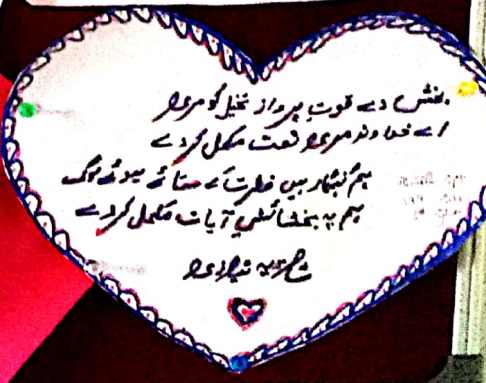 بخش دے قوتِ پرواز تخیل کو مری
اے خداوند مری نعت مکمل کر دے
ہم گنہگار ہیں فطرت کے ستائے ہوئے لوگ
ہم پہ بخشائش کی آیات مکمل کر دے